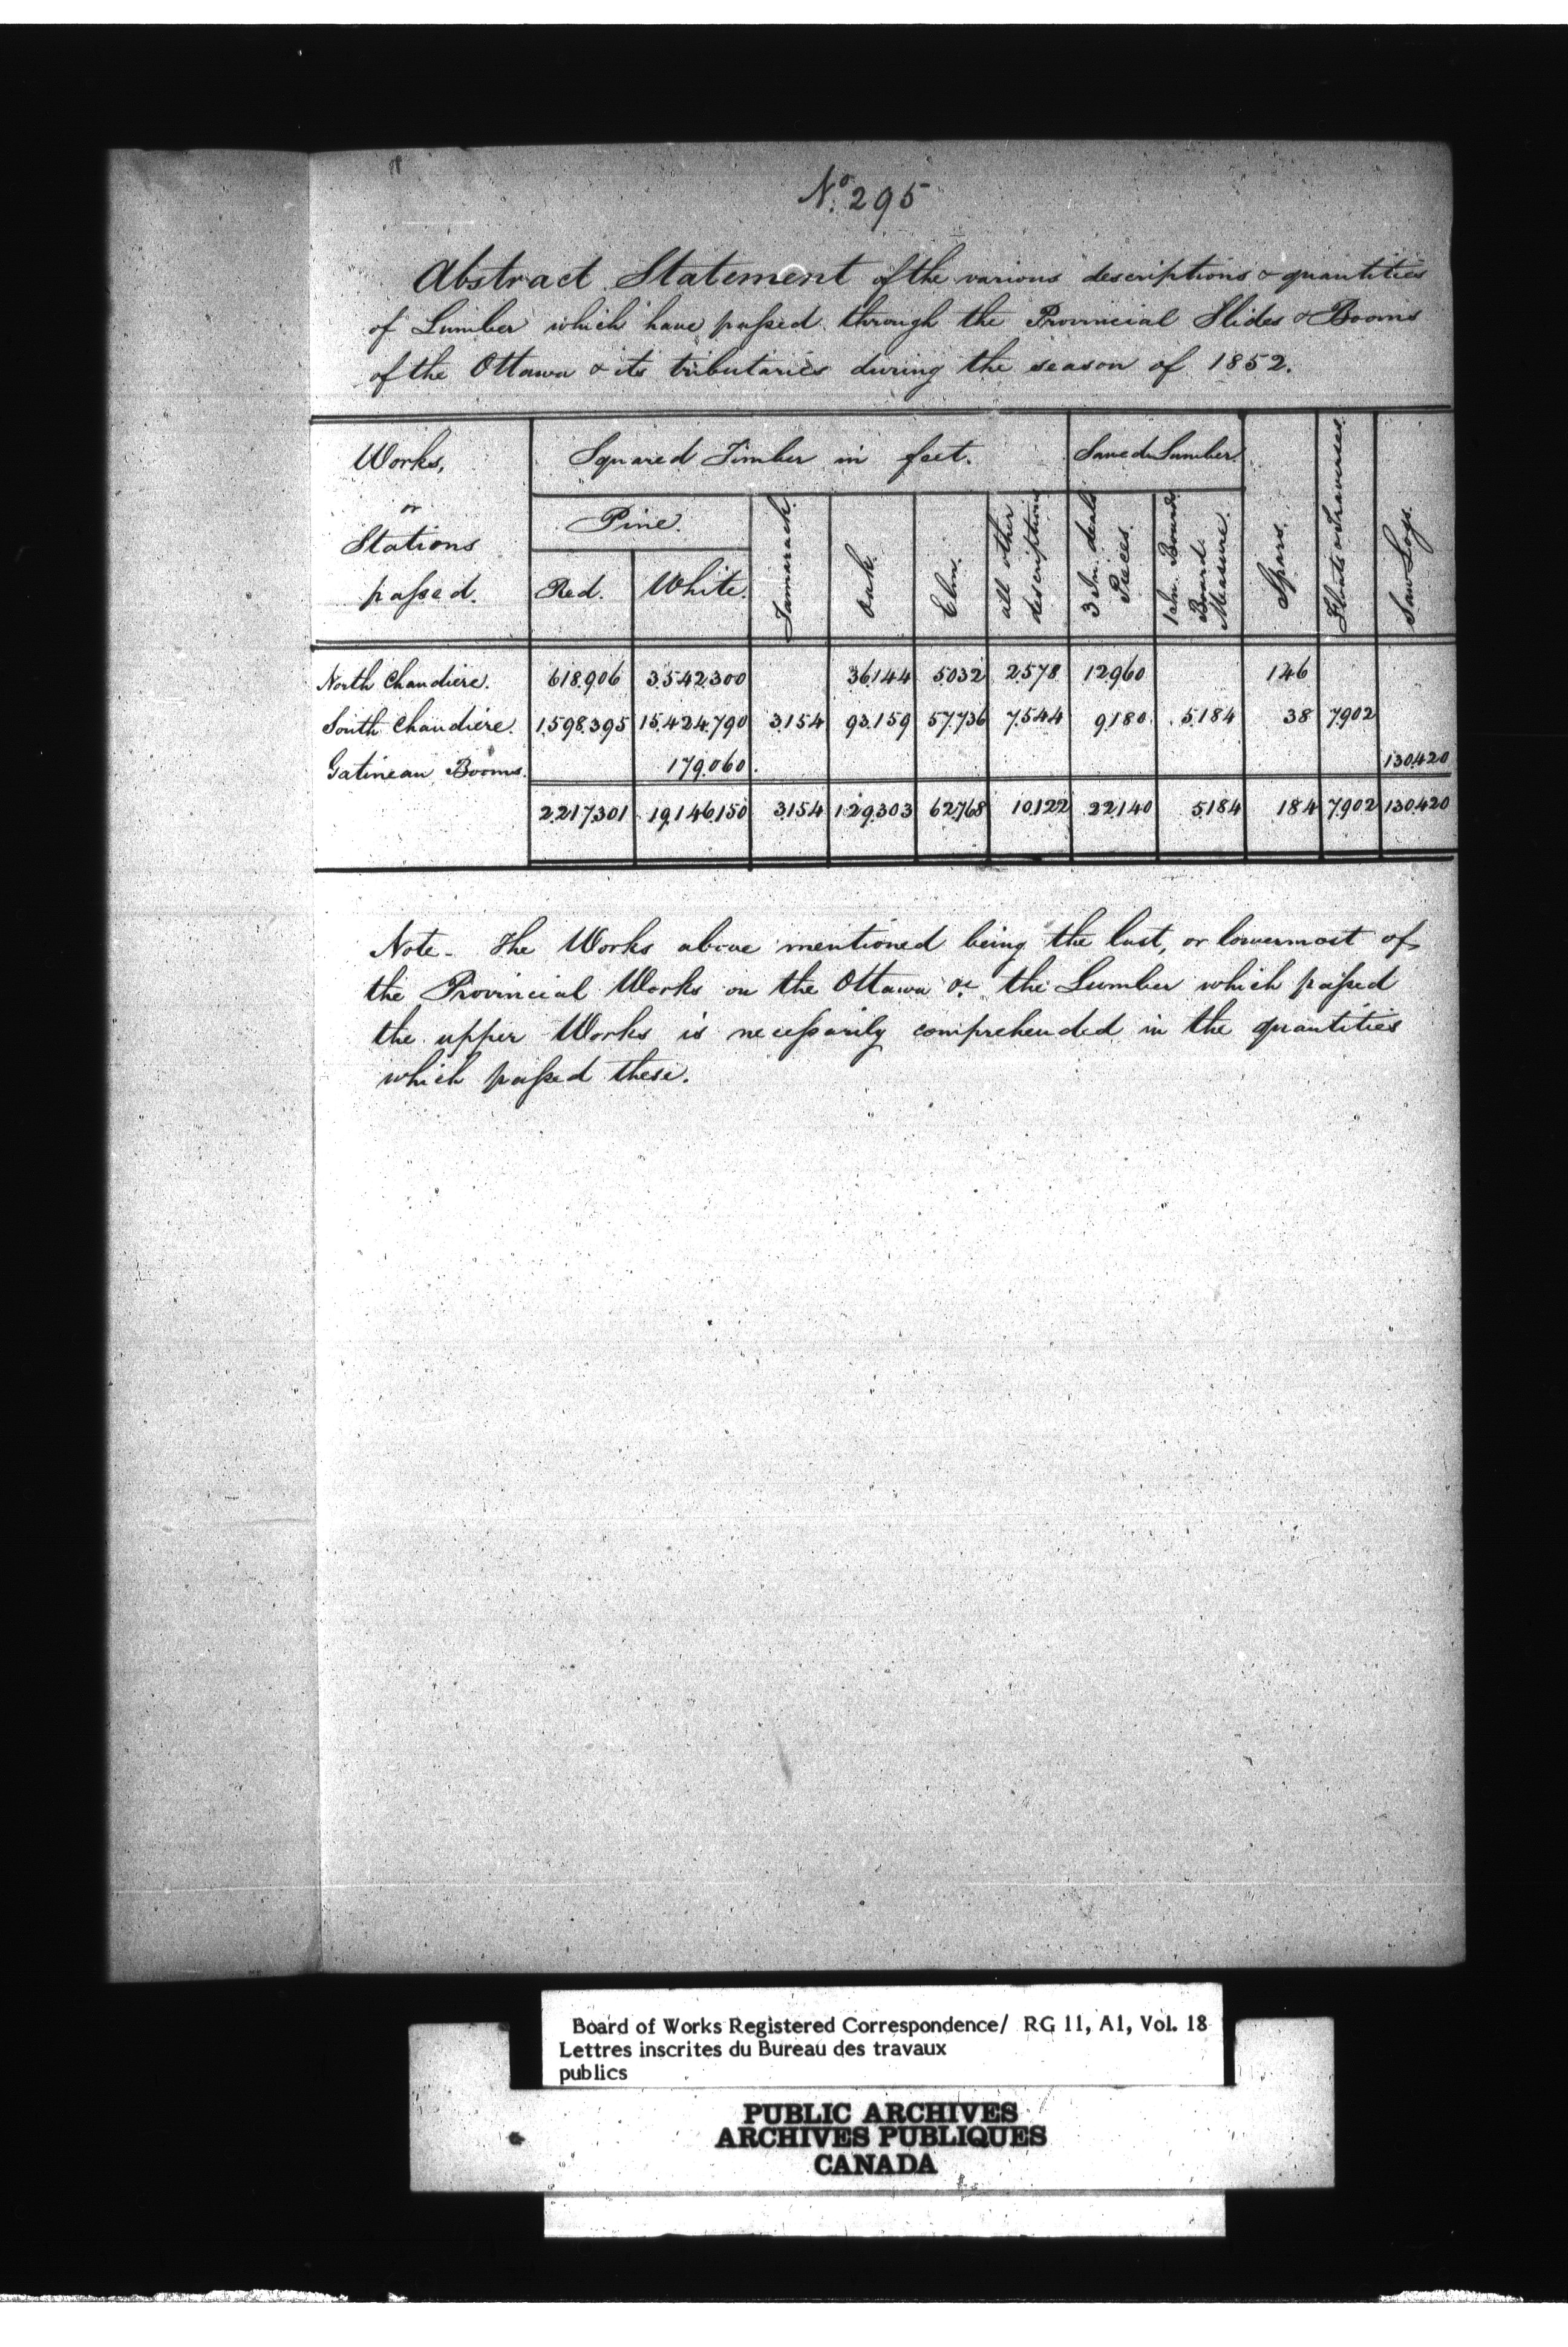 No. 295
Abstract Statement of the various descriptions & quantities
of Lumber which have passed through the Provincial Slides & Booms
of the Ottawa & its tributaries during the season of 1852.
Works, or Stations passed.
Squared Timber in feet.
Sawed Lumber.
Pine.
Red.
White.
Tamarack.
Oak.
Elm.
all other descriptions
3 In. deals Pieces.
1 In. Boards Board Measure.
Spars.
Floats or Traverses.
Saw Logs.
North Chaudière. 618.906 3.542.300 36.144 5.032 2.578 12.960 146
South Chaudière. 1.598.395 15.424.790 3.154 93.159 57.736 7.544 9.180 5.184 38 7.902
Gatineau Booms. 179.060 130.420
2.217.301 19.146.150 3.154 129.303 62.768 10.122 22.140 5.184 184 7.902 130.420
Note - The Works above mentioned being the last, or lowermost of
the Provincial Works on the Ottawa &c the Lumber which passed
the upper Works is necessarily comprehended in the quantities
which passed these.
Board of Works Registered Correspondence/ RG 11, A1, Vol. 18
Lettres inscrites du Bureau des travaux
publics
PUBLIC ARCHIVES
ARCHIVES PUBLIQUES
CANADA